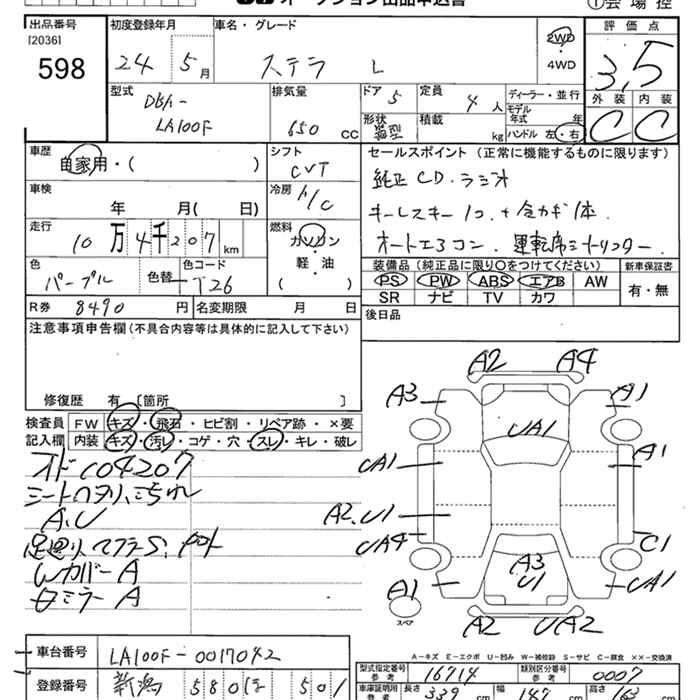 オークション出品申込書
①会場控
出品番号
[2036]
598
初度登録年月
24 5月
車名・グレード
ステラ L
2WD
4WD
評価点
3.5
型式
DBA-
LA100F
排気量
650 cc
ドア 5
定員 4人
形状 箱型
積載 kg
ディーラー・並行
モデル
年式 年
ハンドル 左・右
外装 内装
C C
車歴
自家用・( )
シフト
CVT
車検
年 月( 日)
冷房
A/C
走行
10万4千207km
燃料
ガソリン
軽・油
( )
色
パープル
色替
色コード
T26
R券 8490 円
名変期限 月 日
セールスポイント (正常に機能するものに限ります)
純正CD・ラジオ
キーレスキー1コ+合カギ1本
オートエアコン、運転席シートリフター
装備品 (純正品に限り○をつけてください)
新車保証書
PS PW ABS エアB AW
SR ナビ TV カワ
有・無
後日品
注意事項申告欄(不具合内容等は具体的に記入して下さい)
修復歴 有 [箇所 ]
検査員
記入欄
FW キズ・飛石・ヒビ割・リペア跡・×要
内装 キズ・汚レ・コゲ・穴・スレ・キレ・破レ
オド104207
シートヘタリ
A.U
足廻り マフラーS
Wカバー A
ミラー A
A2 A4
A3 A1
UA1
UA1 A1
A2.U1
UA4 C1
A3
U1
A1 UA1
スペア
A2 UA2
A-キズ E-エクボ U-凹み W-補修跡 S-サビ C-腐食 ××-交換済
車台番号
LA100F-0017042
登録番号
新潟 580 501
型式指定番号
参考
16714
類別区分番号
参考
0007
車庫証明用
参考
長さ 339 cm 幅 147 cm 高さ 163 cm